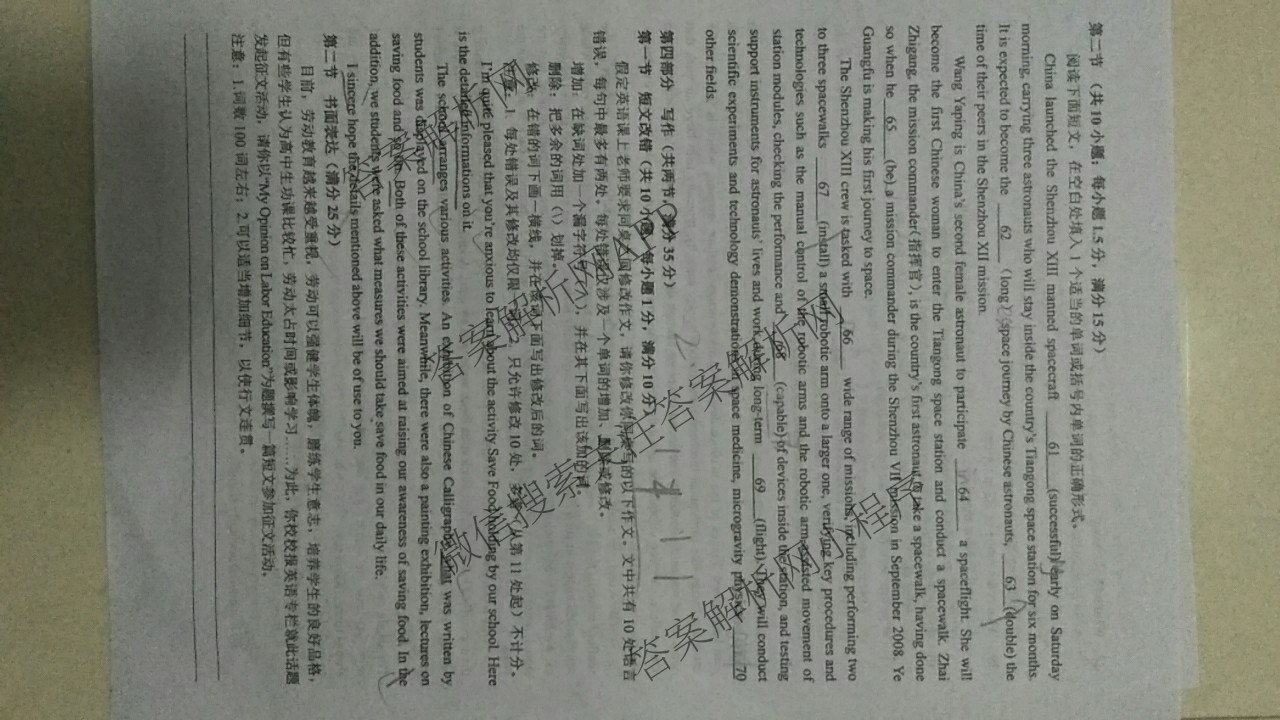 第二节 (共 10 小题；每小题 1.5 分，满分 15 分)
阅读下面短文，在空白处填入 1 个适当的单词或括号内单词的正确形式。
China launched the Shenzhou XIII manned spacecraft 61 (successful) early on Saturday
morning, carrying three astronauts who will stay inside the country's Tiangong space station for six months.
It is expected to become the 62 (long) space journey by Chinese astronauts, 63 (double) the
time of their peers in the Shenzhou XII mission.
Wang Yaping is China's second female astronaut to participate 64 a spaceflight. She will
become the first Chinese woman to enter the Tiangong space station and conduct a spacewalk. Zhai
Zhigang, the mission commander(指挥官), is the country's first astronaut to take a spacewalk, having done
so when he 65 (be) a mission commander during the Shenzhou VII mission in September 2008. Ye
Guangfu is making his first journey to space.
The Shenzhou XIII crew is tasked with 66 wide range of missions, including performing two
to three spacewalks 67 (install) a small robotic arm onto a larger one, verifying key procedures and
technologies such as the manual control of the robotic arms and the robotic arm-assisted movement of
station modules, checking the performance and 68 (capable) of devices inside the station, and testing
support instruments for astronauts' lives and work during long-term 69 (flight). They will conduct
scientific experiments and technology demonstrations in space medicine, microgravity physics 70
other fields.
第四部分 写作 (共两节，满分 35 分)
第一节 短文改错 (共 10 小题；每小题 1 分，满分 10 分)
假定英语课上老师要求同桌之间修改作文，请你修改你同桌写的以下作文。文中共有 10 处语言
错误，每句中最多有两处。每处错误仅涉及一个单词的增加、删除或修改。
增加：在缺词处加一个漏字符号(∧)，并在其下面写出该加的词。
删除：把多余的词用（\）划掉。
修改：在错的词下画一横线，并在该词下面写出修改后的词。
注意：1. 每处错误及其修改均仅限一词；2. 只允许修改 10 处，多者（从第 11 处起）不计分。
I'm quite pleased that you're anxious to learn about the activity Save Food holding by our school. Here
is the detailed informations on it.
The school arranges various activities. An exhibition of Chinese Calligraphy that was written by
students was displayed on the school library. Meanwhile, there were also a painting exhibition, lectures on
saving food and so on. Both of these activities were aimed at raising our awareness of saving food. In the
addition, we students were asked what measures we should take save food in our daily life.
I sincere hope the details mentioned above will be of use to you.
第二节 书面表达 (满分 25 分)
目前，劳动教育越来越受重视，劳动可以强健学生体魄，磨练学生意志，培养学生的良好品格，
但有些学生认为高中生功课比较忙，劳动太占时间或影响学习……为此，你校校报英语专栏就此话题
发起征文活动，请你以"My Opinion on Labor Education"为题撰写一篇短文参加征文活动。
注意：1.词数 100 词左右；2.可以适当增加细节，以使行文连贯。